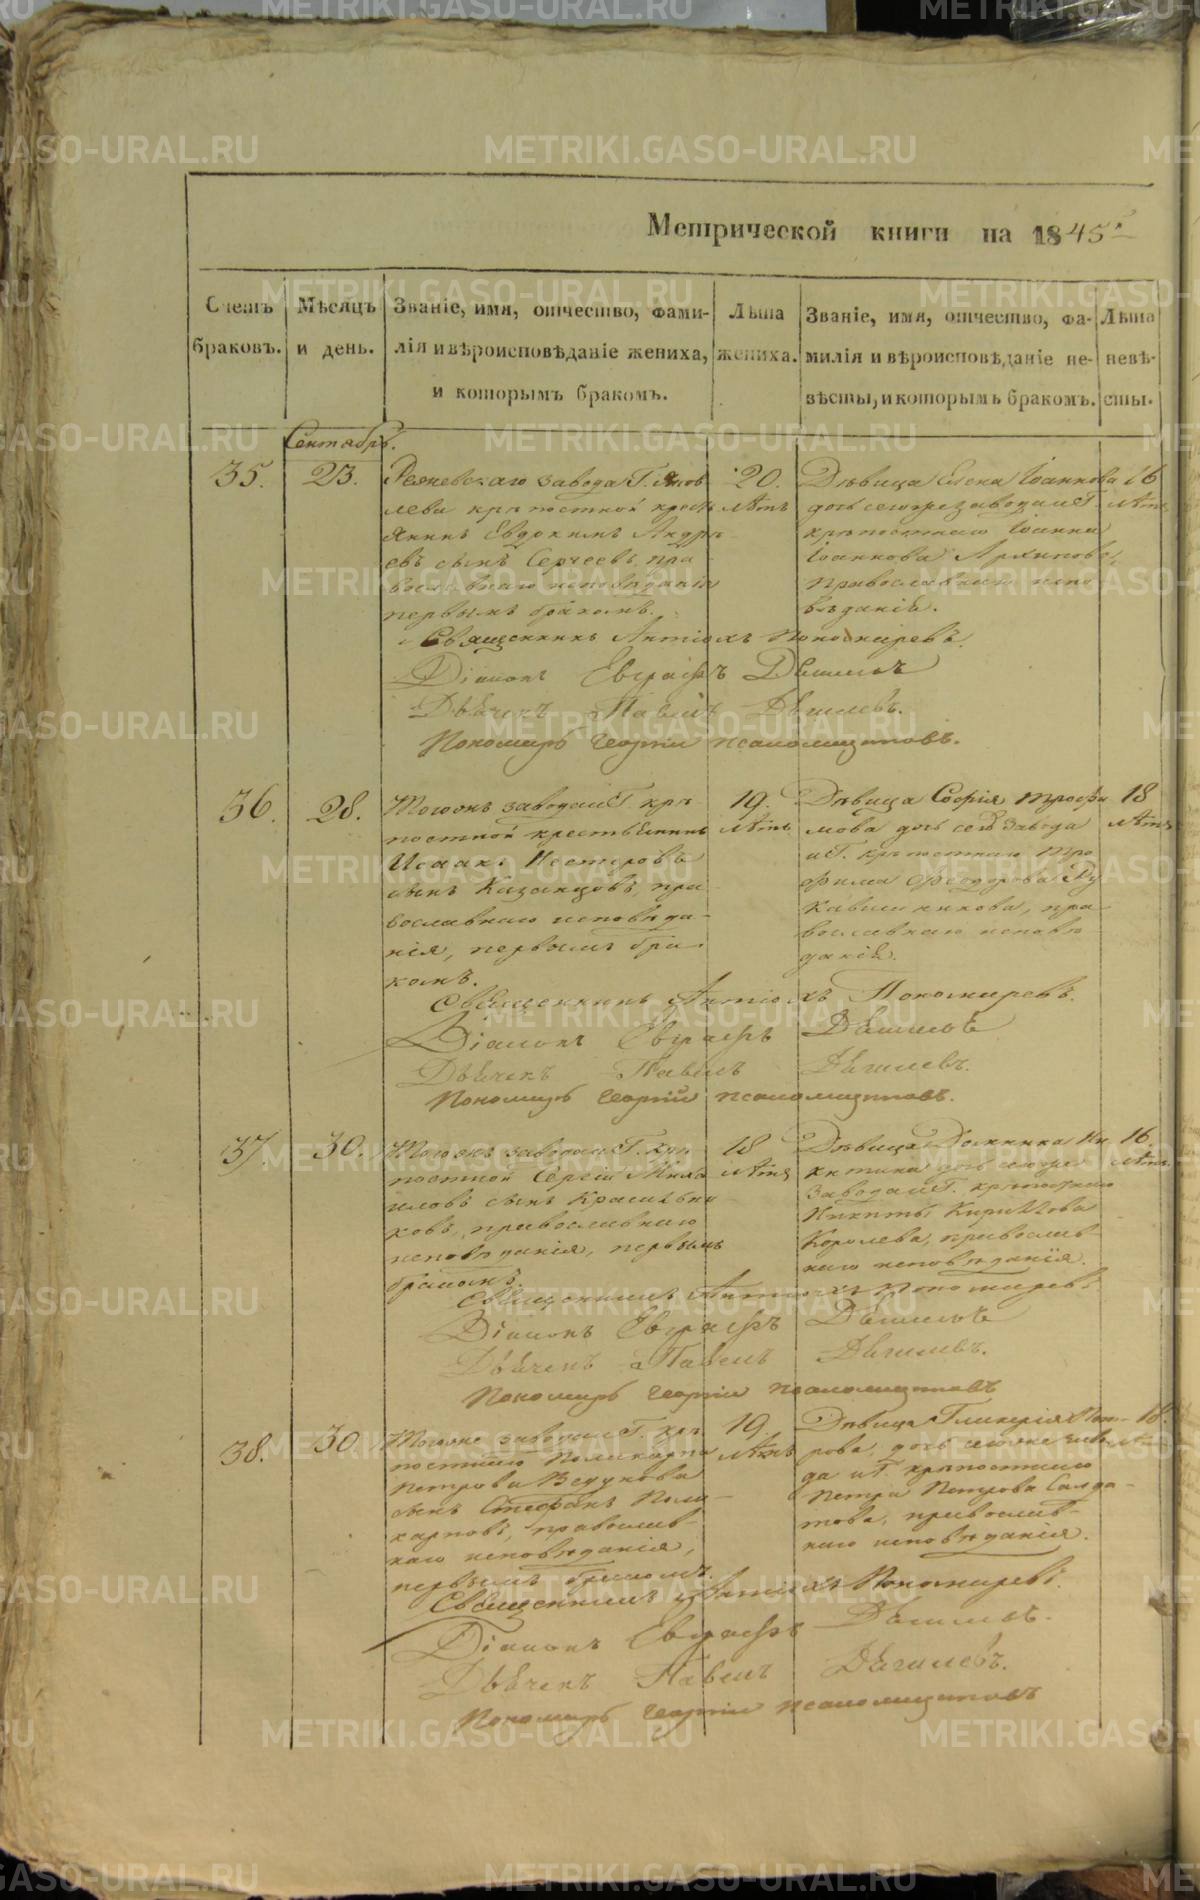 Метрической книги на 1845 г.
Счетъ браковъ.
Мѣсяцъ и день.
Званіе, имя, отчество, фами-
лія и вѣроисповѣданіе жениха,
и которымъ бракомъ.
Лѣта
жениха.
Званіе, имя, отчество, фа-
милія и вѣроисповѣданіе не-
вѣсты, и которымъ бракомъ.
Лѣта
невѣ-
сты.
Сентябрь.
35.
23.
завода Г. Яков
лева крѣпостной кресть
янинъ Евдокимъ Андре
евъ сынъ Сергеевъ, пра
вославнаго исповѣданія
первымъ бракомъ.
20.
лѣтъ
Дѣвица Елена Іоаннова
дочь сегоже завода и Г.
крѣпостнаго Іоанна
Іоаннова Архипова,
православнаго испо
вѣданія.
16
лѣтъ
Священникъ Антіохъ Пономаревъ.
Діаконъ Евграфъ
Дьячекъ Павелъ
Пономарь Георгій
36.
28.
Тогожъ завода и Г. крѣ
постной крестьянинъ
Исаакъ Нестеровъ
сынъ Казанцовъ, пра
вославнаго исповѣда-
нія, первымъ бра
комъ.
19.
лѣтъ
Дѣвица Софія Трофи
мова дочь сего завода
и Г. крѣпостнаго Тро
фима Феодорова Ру
кавишникова, пра
вославнаго исповѣ
данія.
18
лѣтъ
Священникъ Антіохъ Пономаревъ.
Діаконъ Евграфъ
Дьячекъ Павелъ
Пономарь Георгій
37.
30.
Тогожъ завода и Г. крѣ
постной Сергій Миха
иловъ сынъ Красильни
ковъ, православнаго
исповѣданія, первымъ
бракомъ.
18
лѣтъ
Дѣвица Домника Ни
китина дочь сегоже
завода и Г. крѣпостнаго
Никиты Кириллова
Королева, православ-
наго исповѣданія.
16.
лѣтъ
Священникъ Антіохъ Пономаревъ.
Діаконъ Евграфъ
Дьячекъ Павелъ
Пономарь Георгій
38.
30
Тогоже завода и Г. крѣ
постнаго Поликарпа
Петрова
сынъ Стефанъ Поли-
карповъ, православ-
наго исповѣданія,
первымъ бракомъ.
19.
лѣтъ
Дѣвица Гликерія Пет-
рова, дочь сегоже заво
да и Г. крѣпостнаго
Петра Петрова Салда-
това, православ-
наго исповѣданія.
18.
Священникъ Антіохъ Пономаревъ.
Діаконъ Евграфъ
Дьячекъ Павелъ
Пономарь Георгій
METRIKI.GASO-URAL.RU